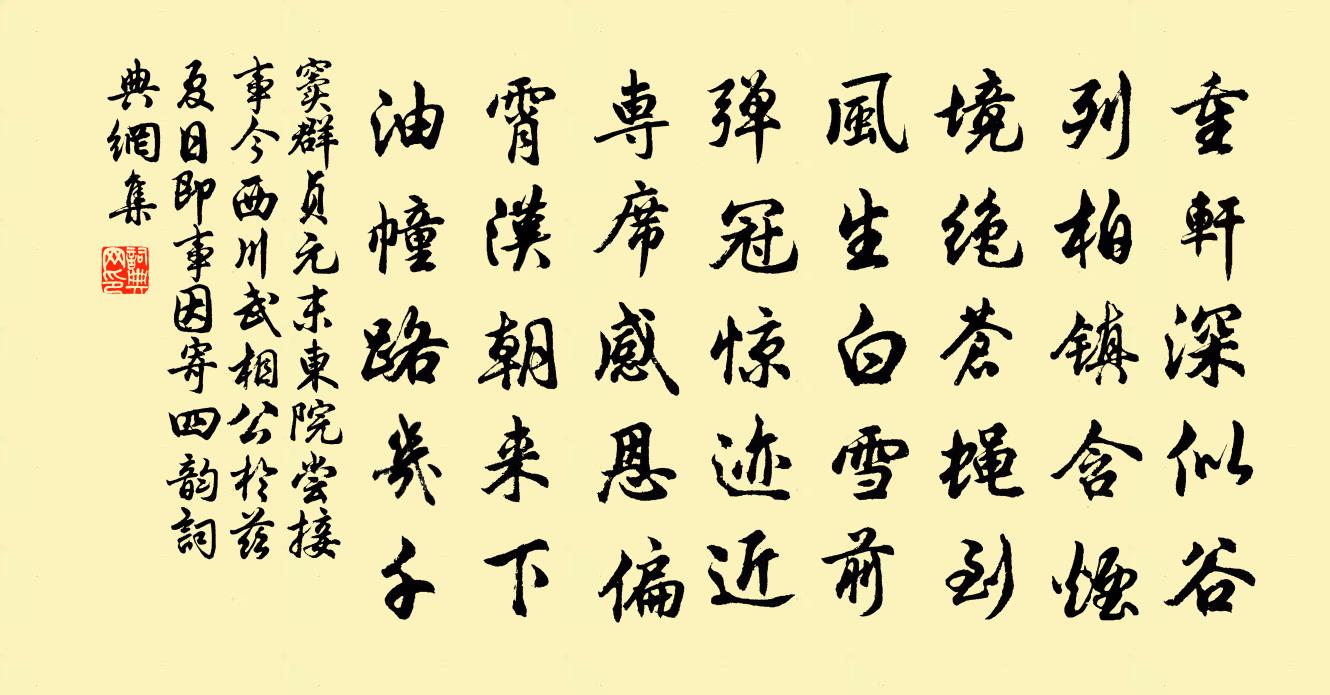 重軒深似谷
列柏镇含煙
境绝蒼蝇到
風生白雪前
弹冠惊迹近
専席感恩偏
霄漢朝来下
油幢路幾千
窦群貞元末東院尝接
事今西川武相公於茲
夏日即事因寄四韵詞
典網集
詞典网印